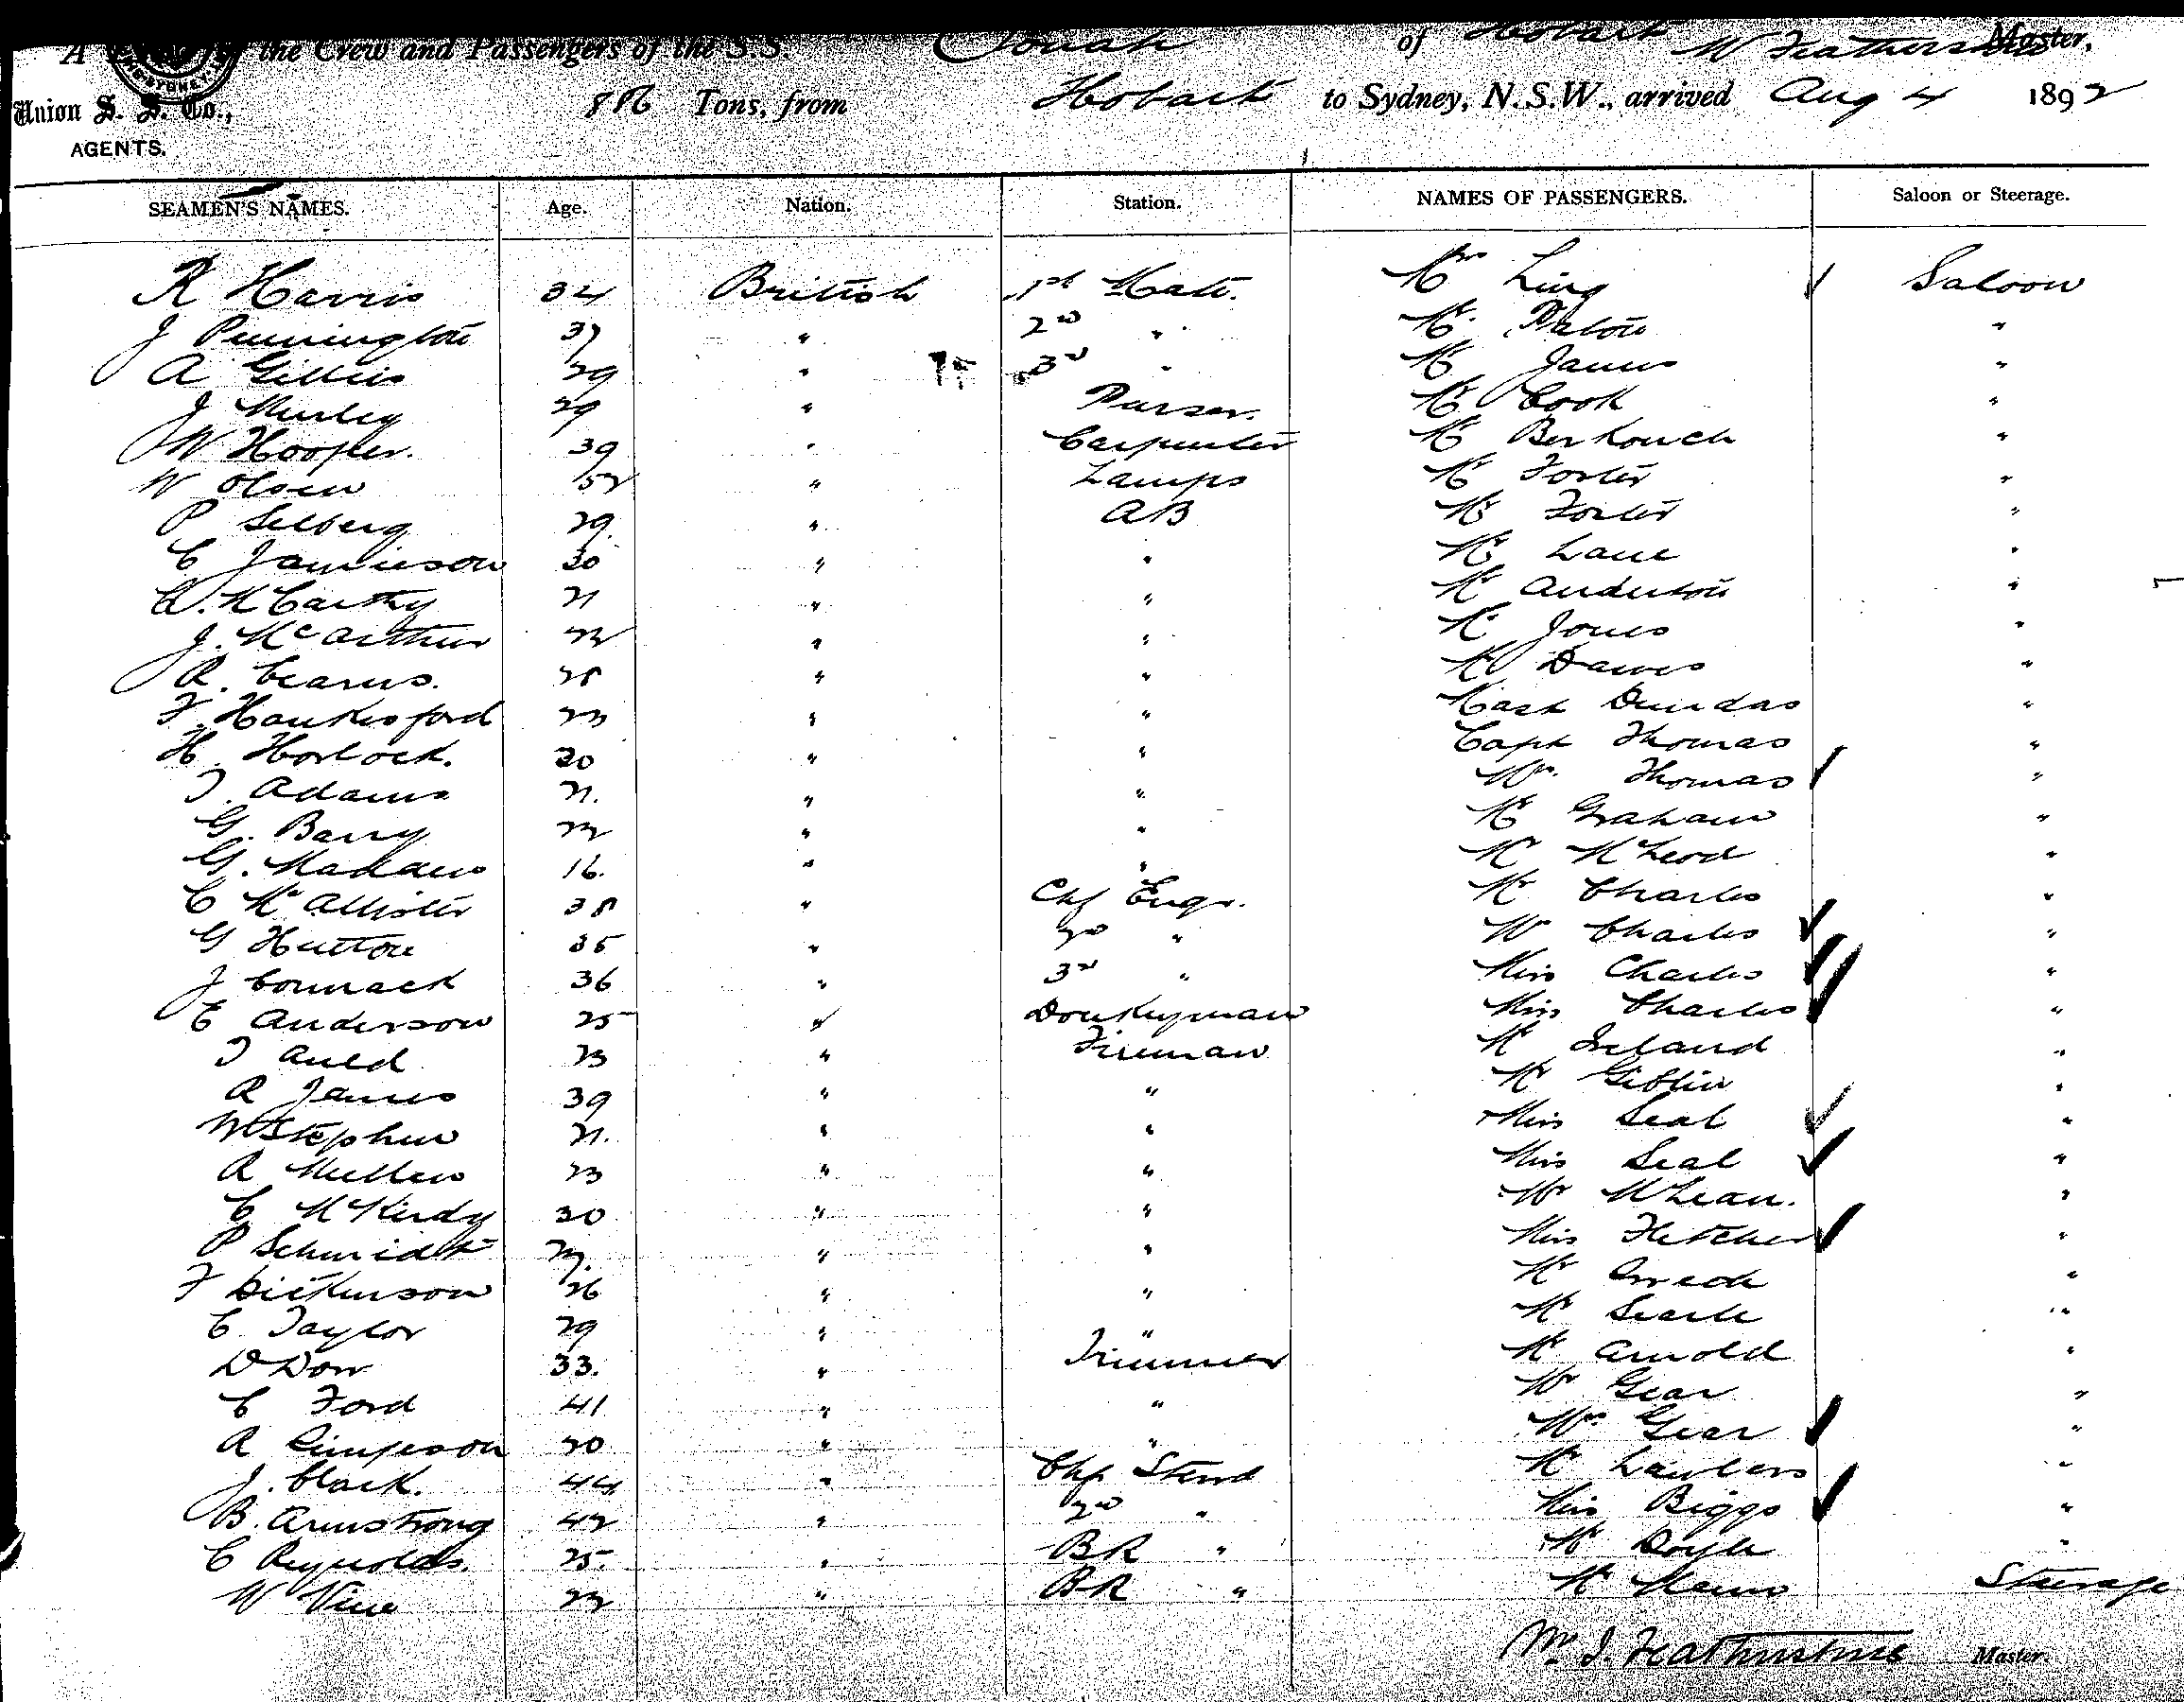 A the Crew and Passengers of the S.S. of Hobart W Featherstone Master,
Union S. S. Co., Tons, from Hobart to Sydney, N.S.W., arrived Aug 4 1892
AGENTS.
SEAMEN'S NAMES. Age. Nation. Station. NAMES OF PASSENGERS. Saloon or Steerage.
R Harris 34 British 1st Mate. Mrs Ling Saloon
J Pennington 37 " 2nd " Mr "
A Gillies 29 " 3rd " Mr James "
J Murley 29 " Purser. Mr Cook "
W Hooper. 39 " Carpenter Mr "
W Olsen 52 " Lamps Mr Foster "
P Selberg 29. " AB Mr Foster "
C Jamieson 30 " " Mr Lane "
C. McCarthy 21 " " Mr Anderson "
J. McArthur 22 " " Mr Jones "
R. Cearns. " " Mr Dawes "
F. Hankesford 23 " " Mast Dundas "
H. Horlock. 20 " " Capt Thomas "
T. Adams 21. " " Mrs Thomas "
G. Barry 22 " " Mr Graham "
G. Maddens 16. " " Mr McLeod "
C McAllister 38 " Chf Engr. Mr Charles "
G Hutton 35 " 2nd " Mrs Charles "
J Cormack 36 " 3rd " Miss Charles "
E Anderson 25 " Donkeyman Miss Charles "
T Auld 23 " Fireman Mr Ireland "
R James 39 " " Mr Giblin "
W Stephen 21. " " Miss Seal "
R Mullen 23 " " Miss Seal "
C McKirdy 30 " " Mr McLean. "
P Schmidt " " Miss Fletcher "
F Dickenson 26 " " Mr "
C. Taylor 29 " " Mr Searle "
D Dow 33. " Trimmer Mr Arnold "
C Ford 41 " " Mr Gear "
R Simpson 20 " " Mrs Gear "
J. Clark. 44 " Chf Stewd Mr "
B. Armstrong 42 " 2nd " Miss Biggs "
C Reynolds. 25. " BR " Mr Doyle "
W Vine 22 " BR " Mr Steerage
Wm J. Featherstone Master.